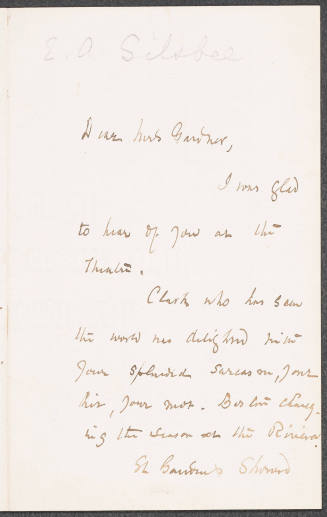 E. A. Silsbee
Dear Mrs Gardner,
I was glad
to hear of you at the
Theatre.
Clark who has seen
the world was delighted with
your splendid sarcasm, your
hit, your mot. Boston
ing the season at the Riviera
St Gaudens Should